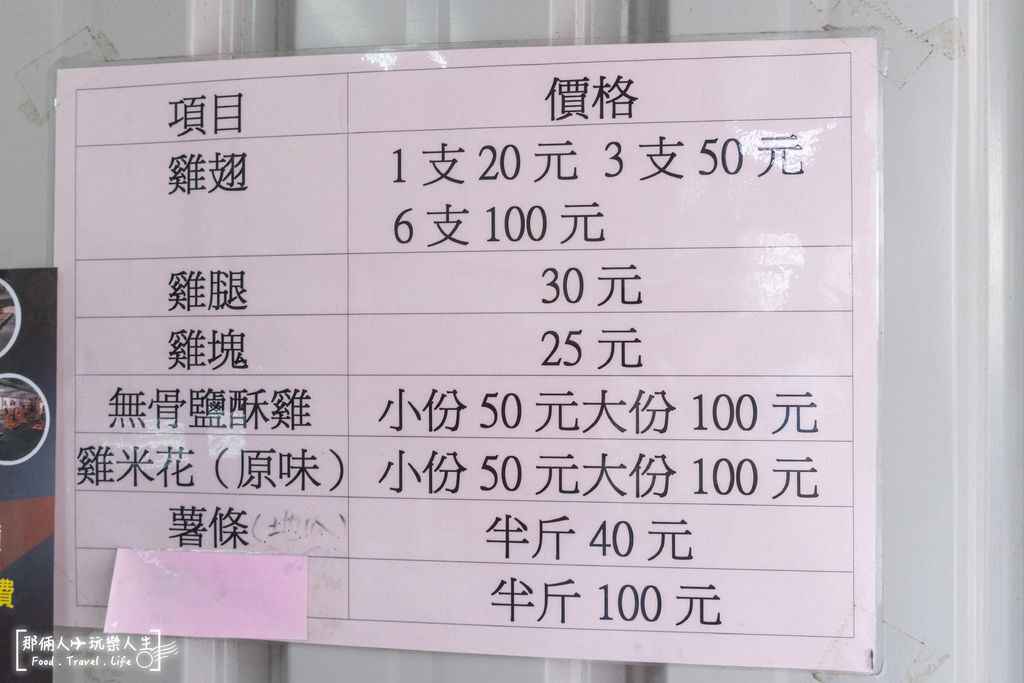 項目 價格
雞翅 1支20元 3支50元
6支100元
雞腿 30元
雞塊 25元
無骨鹽酥雞 小份50元大份100元
雞米花（原味） 小份50元大份100元
薯條(地瓜) 半斤40元
半斤100元
費
那倆人玩樂人生
Food . Travel . Life